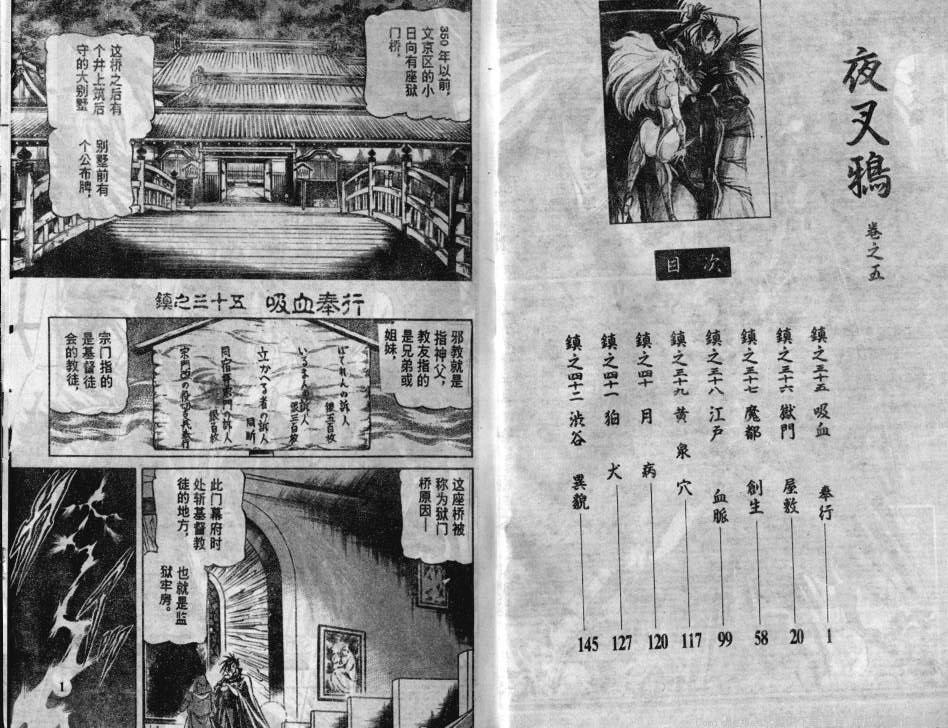 夜叉鴉
卷之五
目次
鎮之三十五 吸血奉行 1
鎮之三十六 獄門屋敷 20
鎮之三十七 魔都創生 58
鎮之三十八 江戸血脈 99
鎮之三十九 黄泉穴 117
鎮之四十 月病 120
鎮之四十一 狛犬 127
鎮之四十二 渋谷異貌 145
350年以前，
文京区的小
日向有座獄
门桥。
这桥之后有
个井上筑后
守的大别墅
别墅前有
个公布牌，
鎮之三十五 吸血奉行
邪教就是
指神父，
教友指的
是兄弟或
姐妹，
はてれん人の訴人
銀五百枚
いるまん人の訴人
銀三百枚
立かへり者の訴人
同断
同宿并宗門の訴人
銀百枚
宗门指的
是基督徒
会的教徒，
这座桥被
称为獄门
桥原因—
此门幕府时
处斩基督教
徒的地方，
也就是监
獄牢房。
1